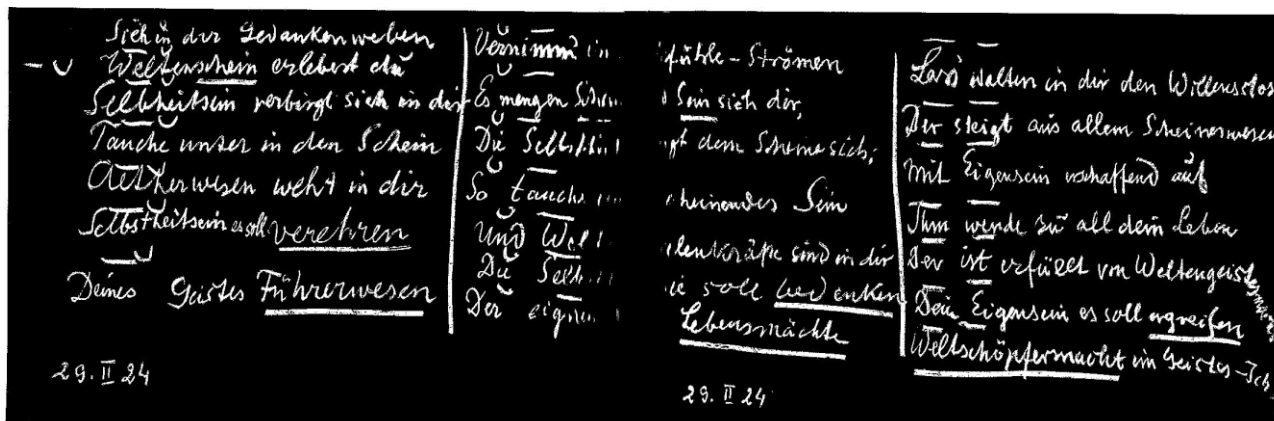 Sieh in dir Gedankenweben
Weltenschein erlebest du
Selbheitsein verbirgt sich in dir
Tauche unter in den Schein
Aetherwesen weht in dir
Selbstheitsein es soll verehren
Deines Geistes Führerwesen
29. II 24
Vernimm in fühle-Strömen
Es mengen Sein sich dir,
Die dem Scheine sich;
So tauche cheinendes Sein
Und Wel lenkräfte sind in dir
Die Selb ie soll bedenken
Der eigne Lebensmächte
29. II 24
Lass walten in dir den Willensstos
Der steigt aus allem Scheineswesen
Mit Eigensein erschaffend auf
Ihm wende zu all dein Leben
Der ist erfüllt von Weltengeistesmacht
Dein Eigensein es soll ergreifen
Weltschöpfermacht im Geistes-Ich